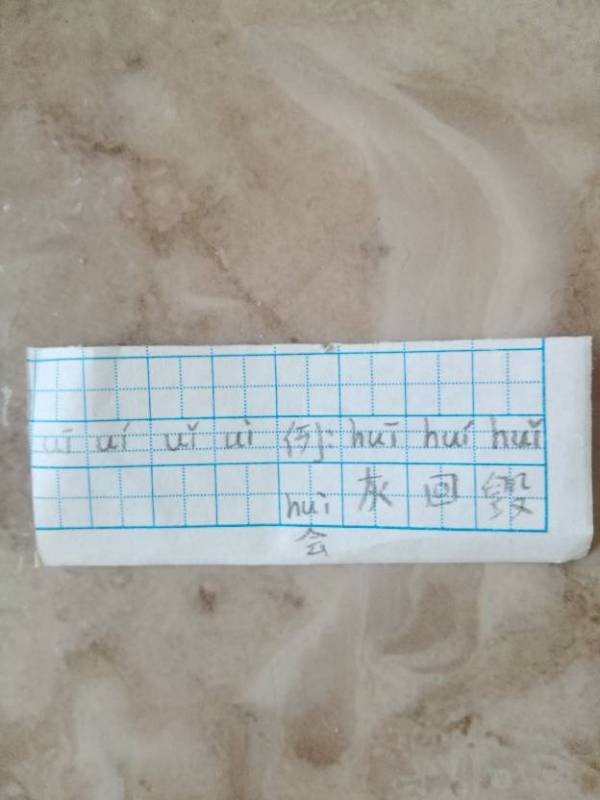 uī uí uǐ uì 例: huī huí huǐ
huì 灰 回 毁
会